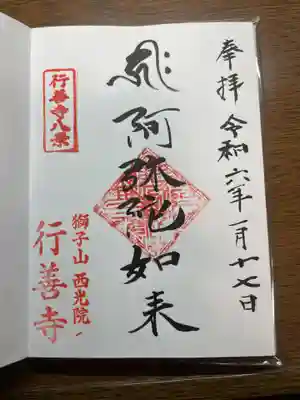 奉拝 令和六年一月十七日
阿弥陀如来
行善寺八景
獅子山 西光院
行善寺